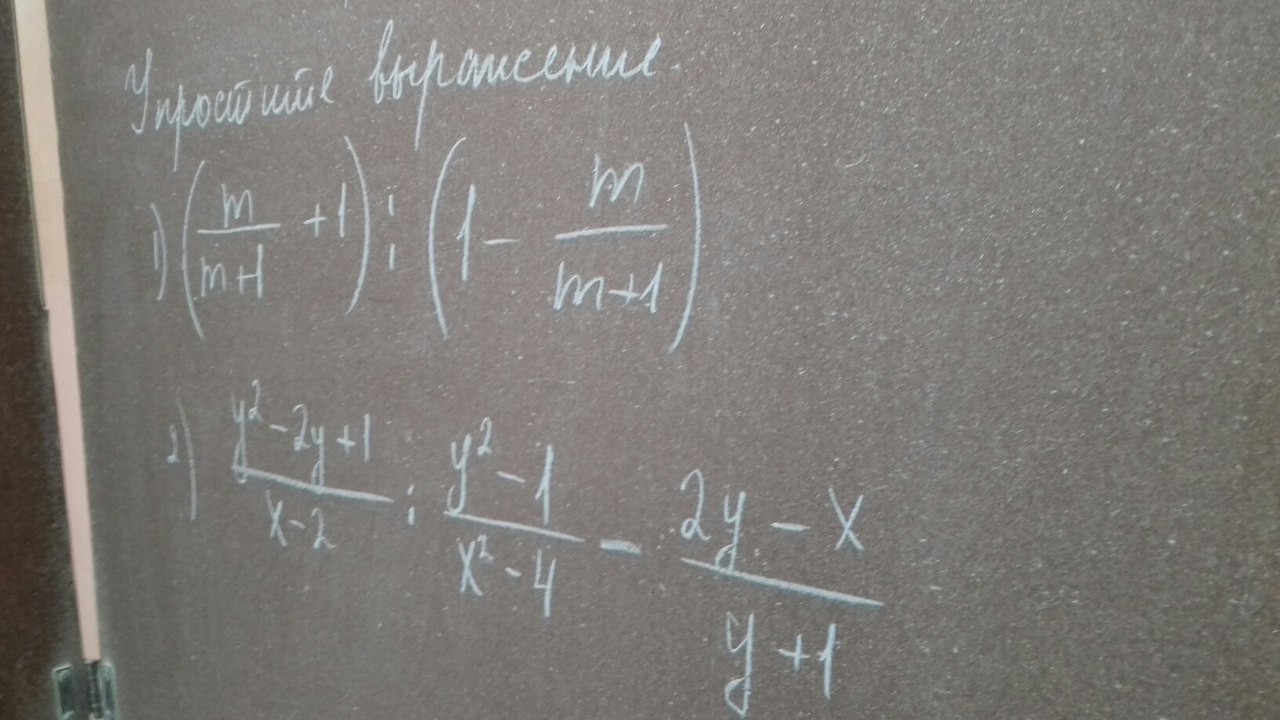 Упростите выражение.
1) (m/(m+1) + 1) : (1 - m/(m+1))
2) (y² - 2y + 1)/(x - 2) : (y² - 1)/(x² - 4) - (2y - x)/(y + 1)